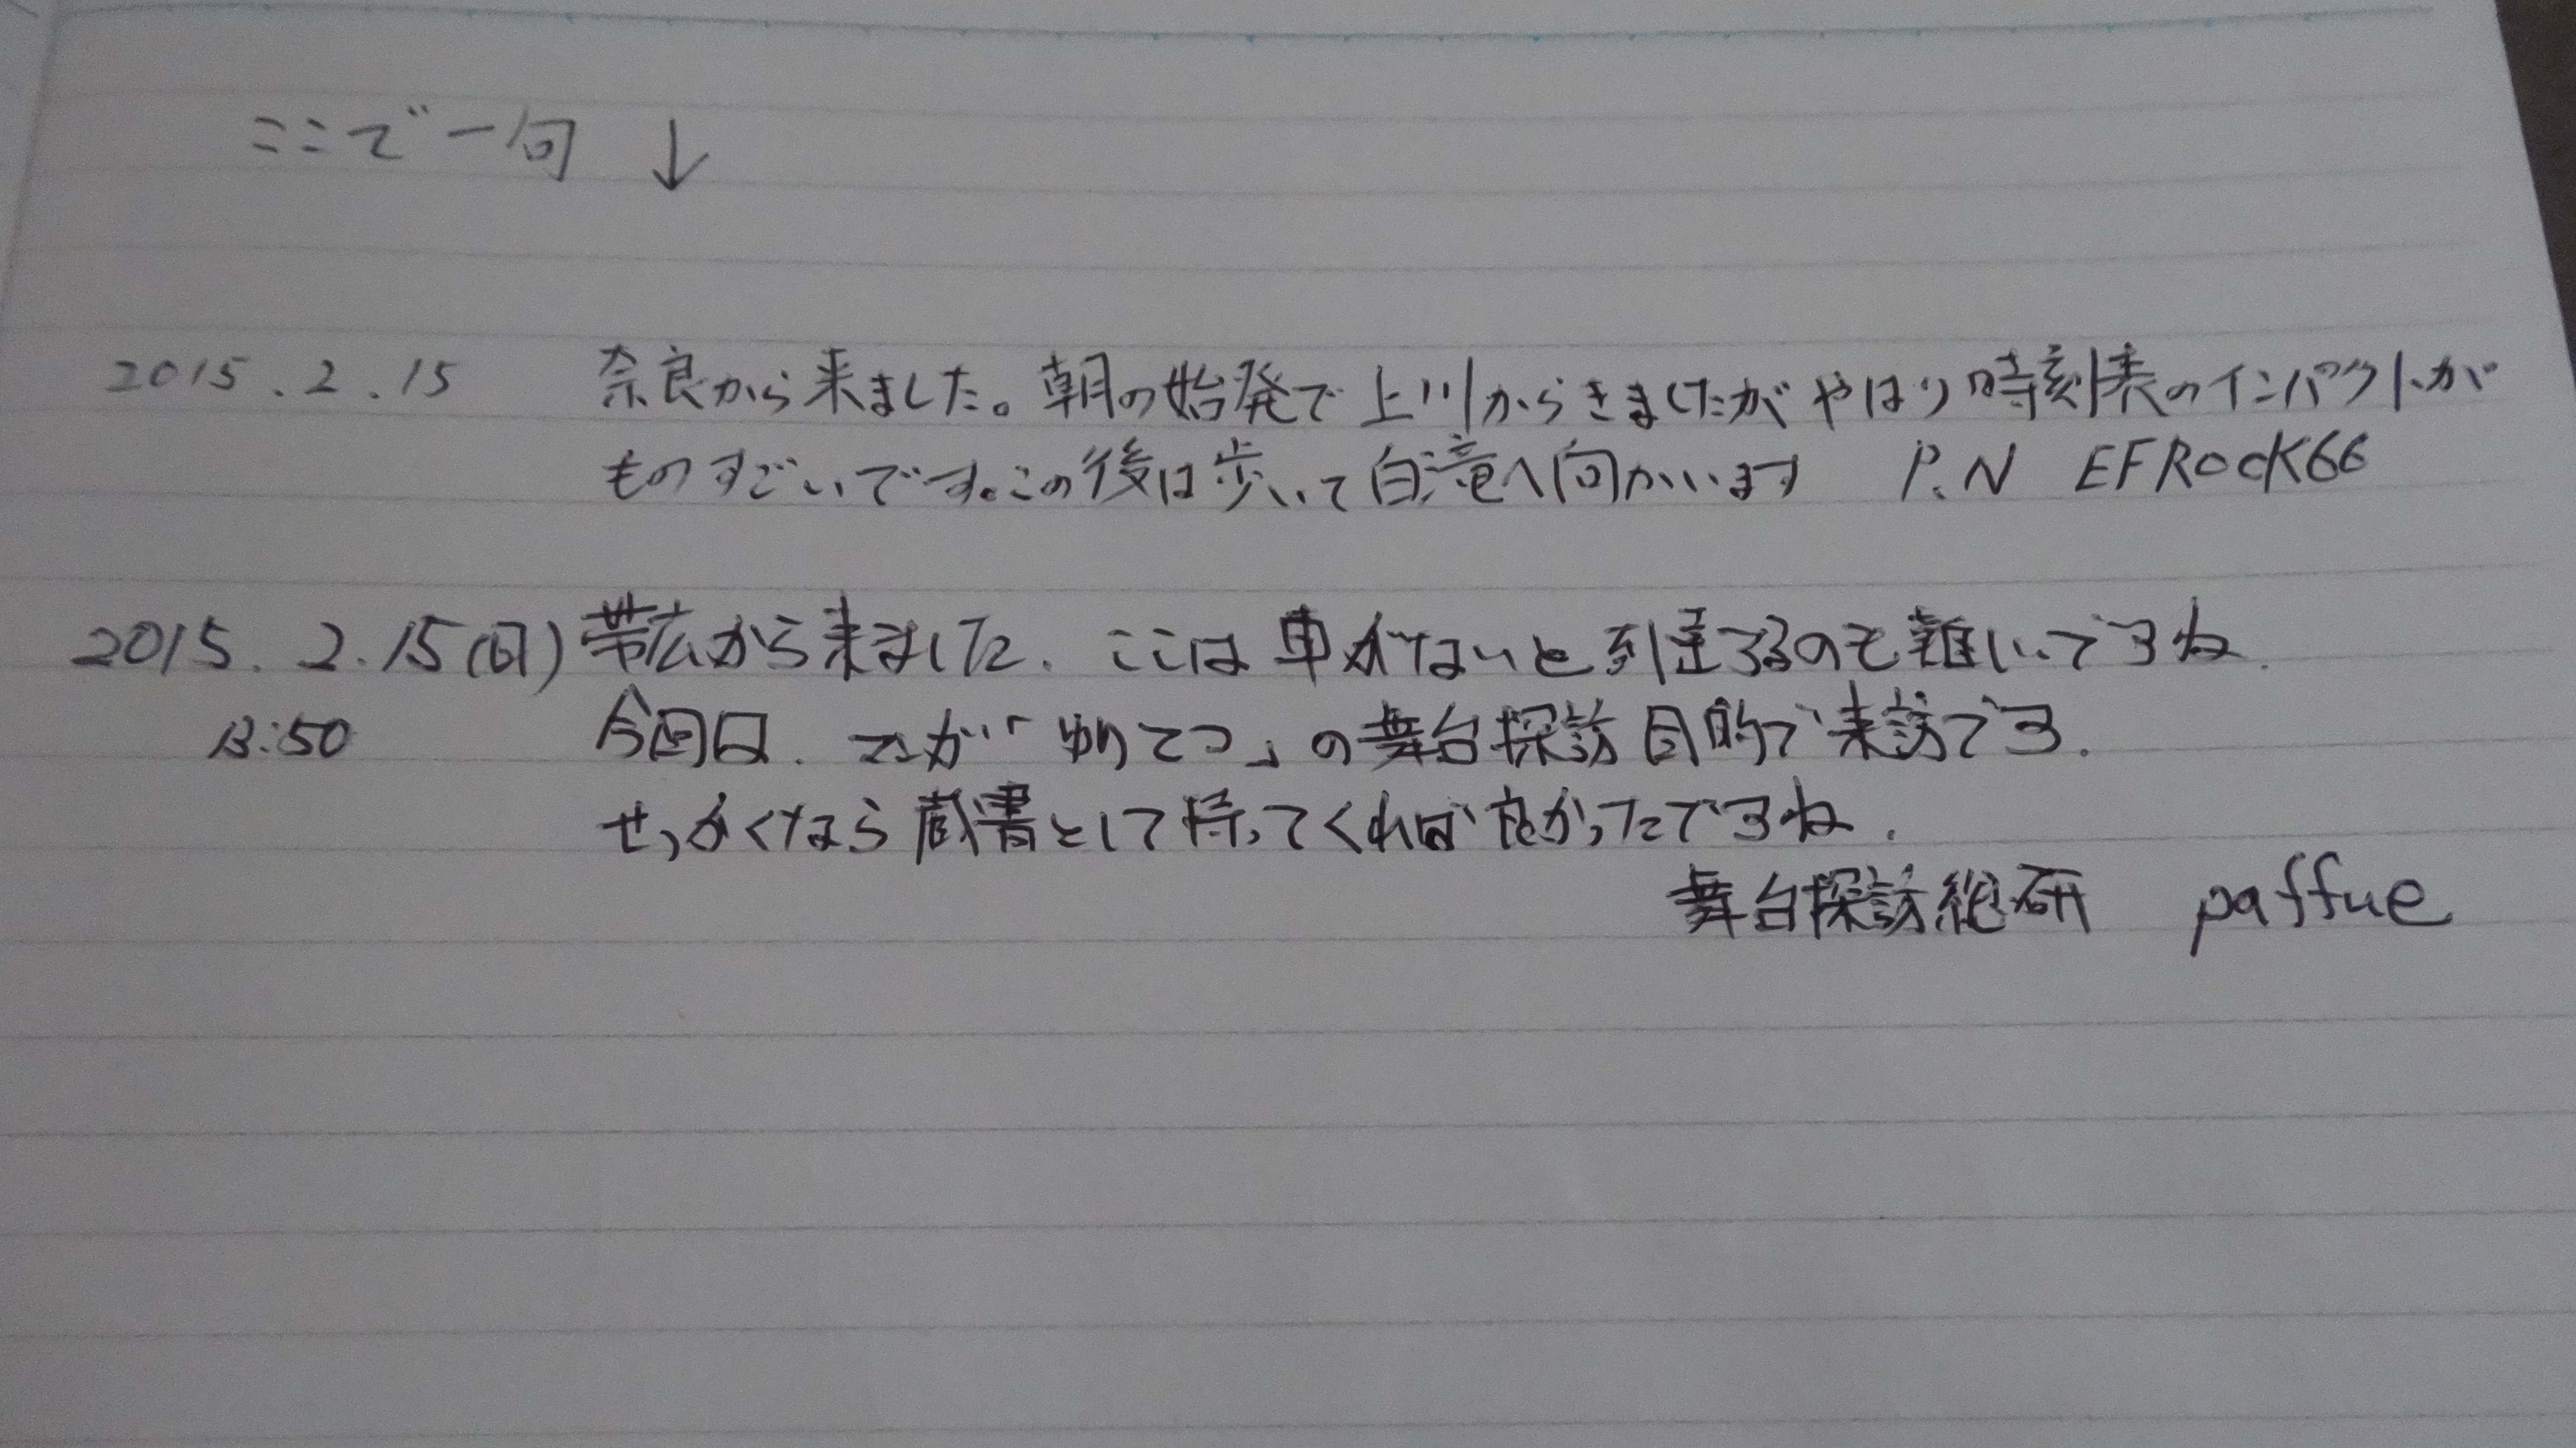 ここで一句 ↓
2015.2.15 奈良から来ました。朝の始発で上川からきましたがやはり時刻表のインパクトが
ものすごいです。この後は歩いて白滝へ向かいます P.N EFRocK66
2015.2.15(日) 帯広から来ました. ここは車がないと到達するのも難しいですね.
13:50 今回は. マンガ「ゆりてつ」の舞台探訪目的で来訪です.
せっかくなら蔵書として持ってくれば良かったですね.
舞台探訪総研 paffue